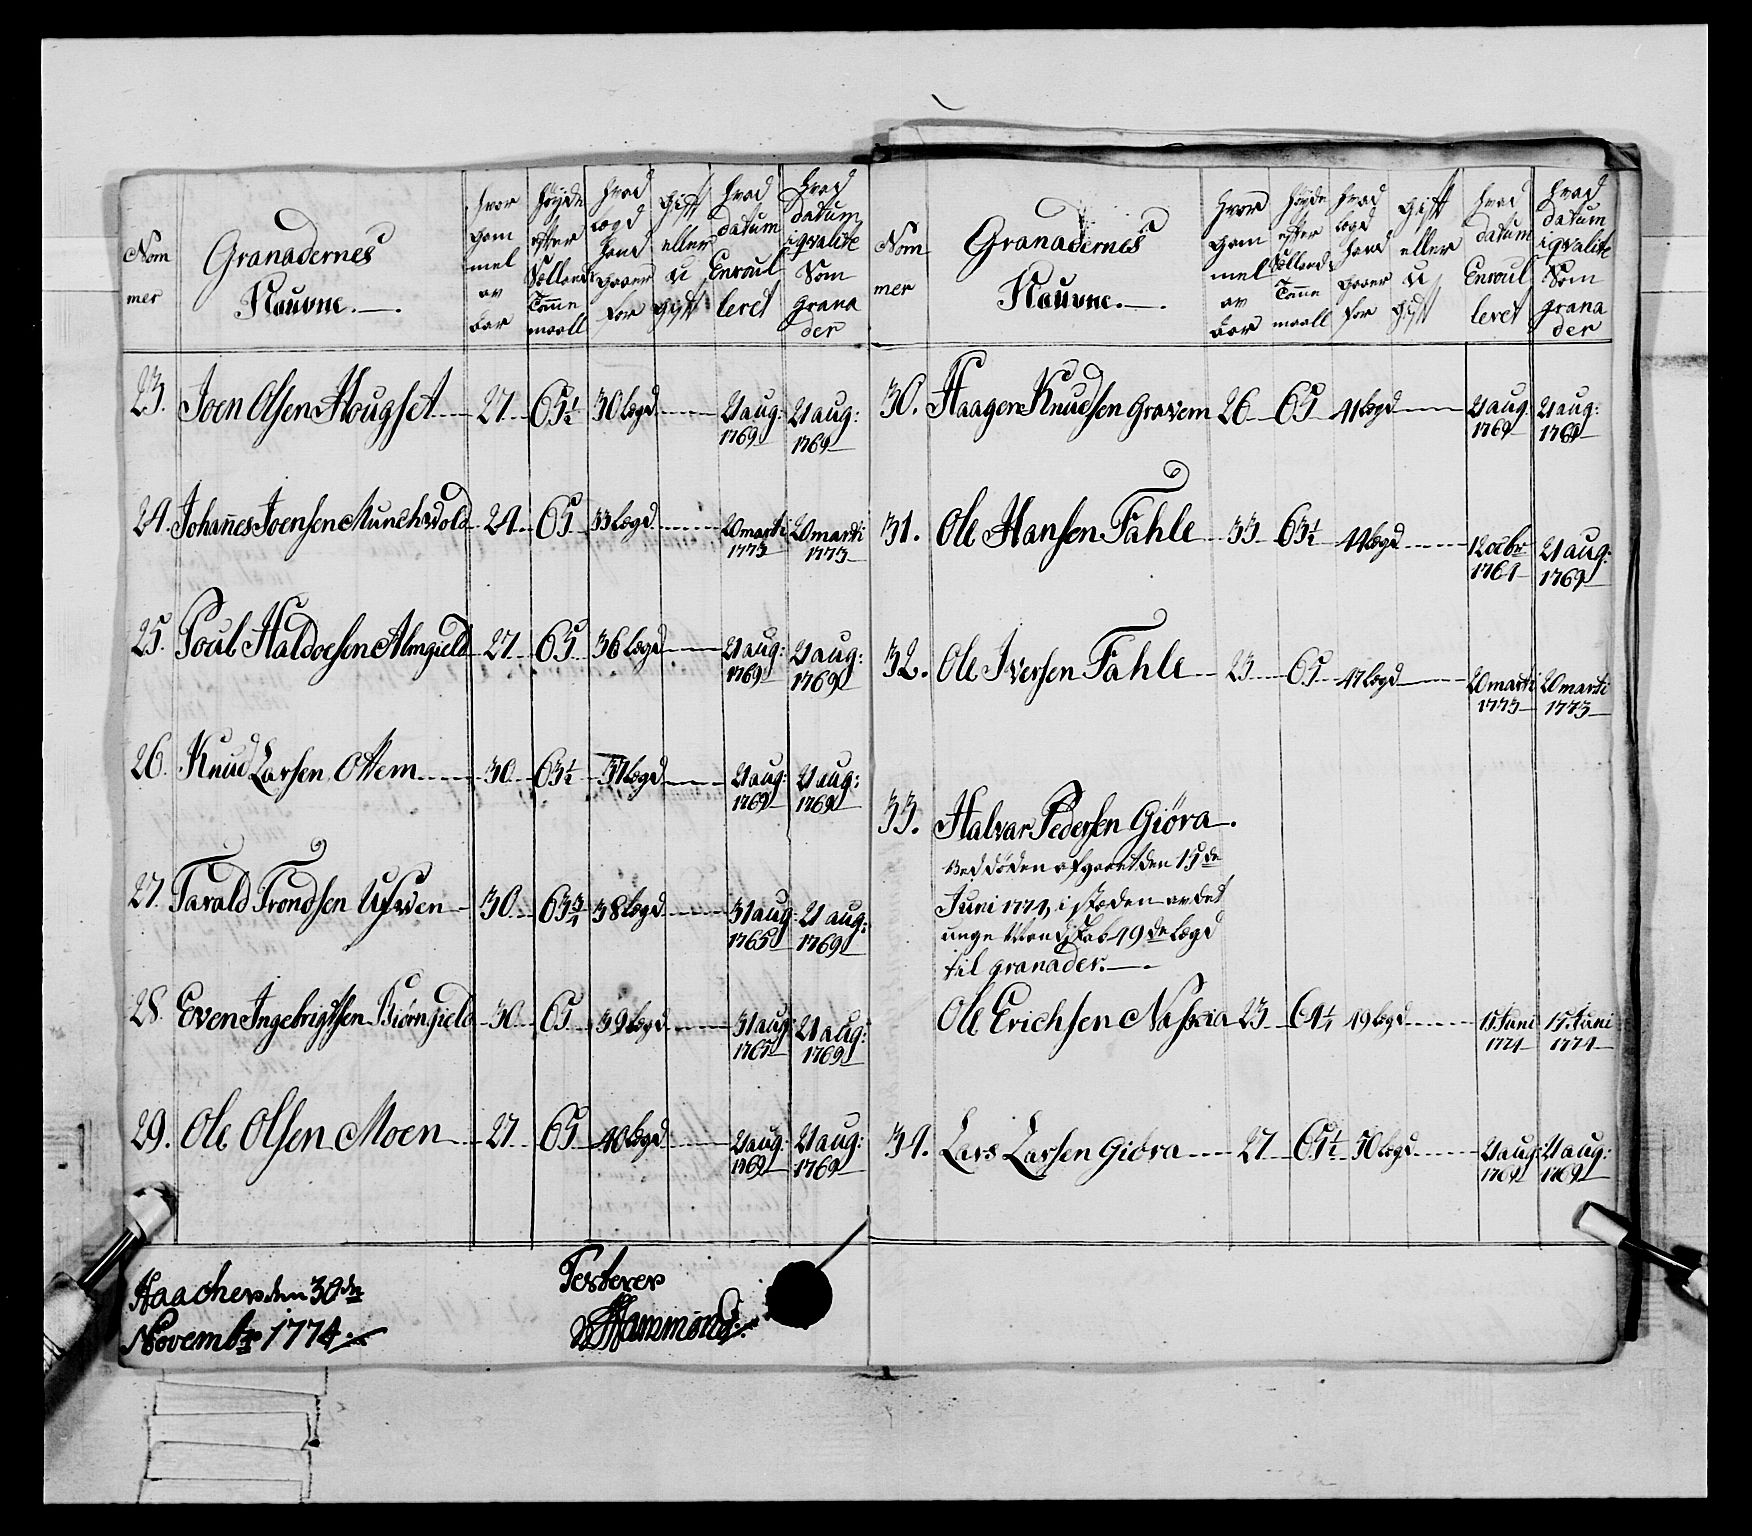 Nom
mer
Granadernes
Nauvne.
hvor
gam
mel
av
aar
Høyde
efter
Sællands
Tomme
maall
hvad
lægd
hand
staaer
for
gift
eller
U
gift
hvad
datum
Enroul
leret
hvad
datum
i qvalite
Som
grana
der
23. Joen Olsen Hougset 27 65½ 30 lægd 21 aug: 1769 21 aug: 1769
24. Johañes Joensen Munchvold 24 65 33 lægd 20 marti 1773 20 marti 1773
25. Poul Haldoesen Almgield 27 65 36 lægd 21 aug: 1769 21 aug: 1769
26. Knud Larsen Ottem 30 63½ 37 lægd 21 aug: 1769 21 aug: 1769
27. Tarald Trondsen 30 63¾ 38 lægd 31 aug: 1765 21 aug: 1769
28. Even Ingebrigtsen Biørngield 30 65 39 lægd 31 aug: 1765 21 aug: 1769
29. Ole Olsen Moen 27 65 40 lægd 21 aug: 1769 21 aug: 1769
Haacker den 30 de
Novembr 1774
Testerer
Hammond
Nom
mer
Granadernes
Nauvne.
hvor
gam
mel
av
aar
Høyde
efter
Sællands
Tomme
maall
hvad
lægd
hand
staaer
for
gift
eller
U
gift
hvad
datum
Enroul
leret
hvad
datum
i qvalite
Som
grana
der
30. Haagen Knudsen Gravem 26 65 41 lægd 21 aug: 1769 21 aug: 1769
31. Ole Hansen Fahle 33 63½ 44 lægd 1 octbr 1764 21 aug: 1769
32. Ole Iversen Fahle 23 65 47 lægd 20 marti 1773 20 marti 1773
33. Halvar Pedersen Giöra.
ved døden afgaaet den 15 de
Juni 1774, i steden av det
unge Mandskab 49 de Lægd
til granader.
Ole Erichsen 23 64¼ 49 lægd 15 Juni 1774 15 Juni 1774
34. Lars Larsen Giöra 27 65½ 50 lægd 21 aug: 1769 21 aug: 1769